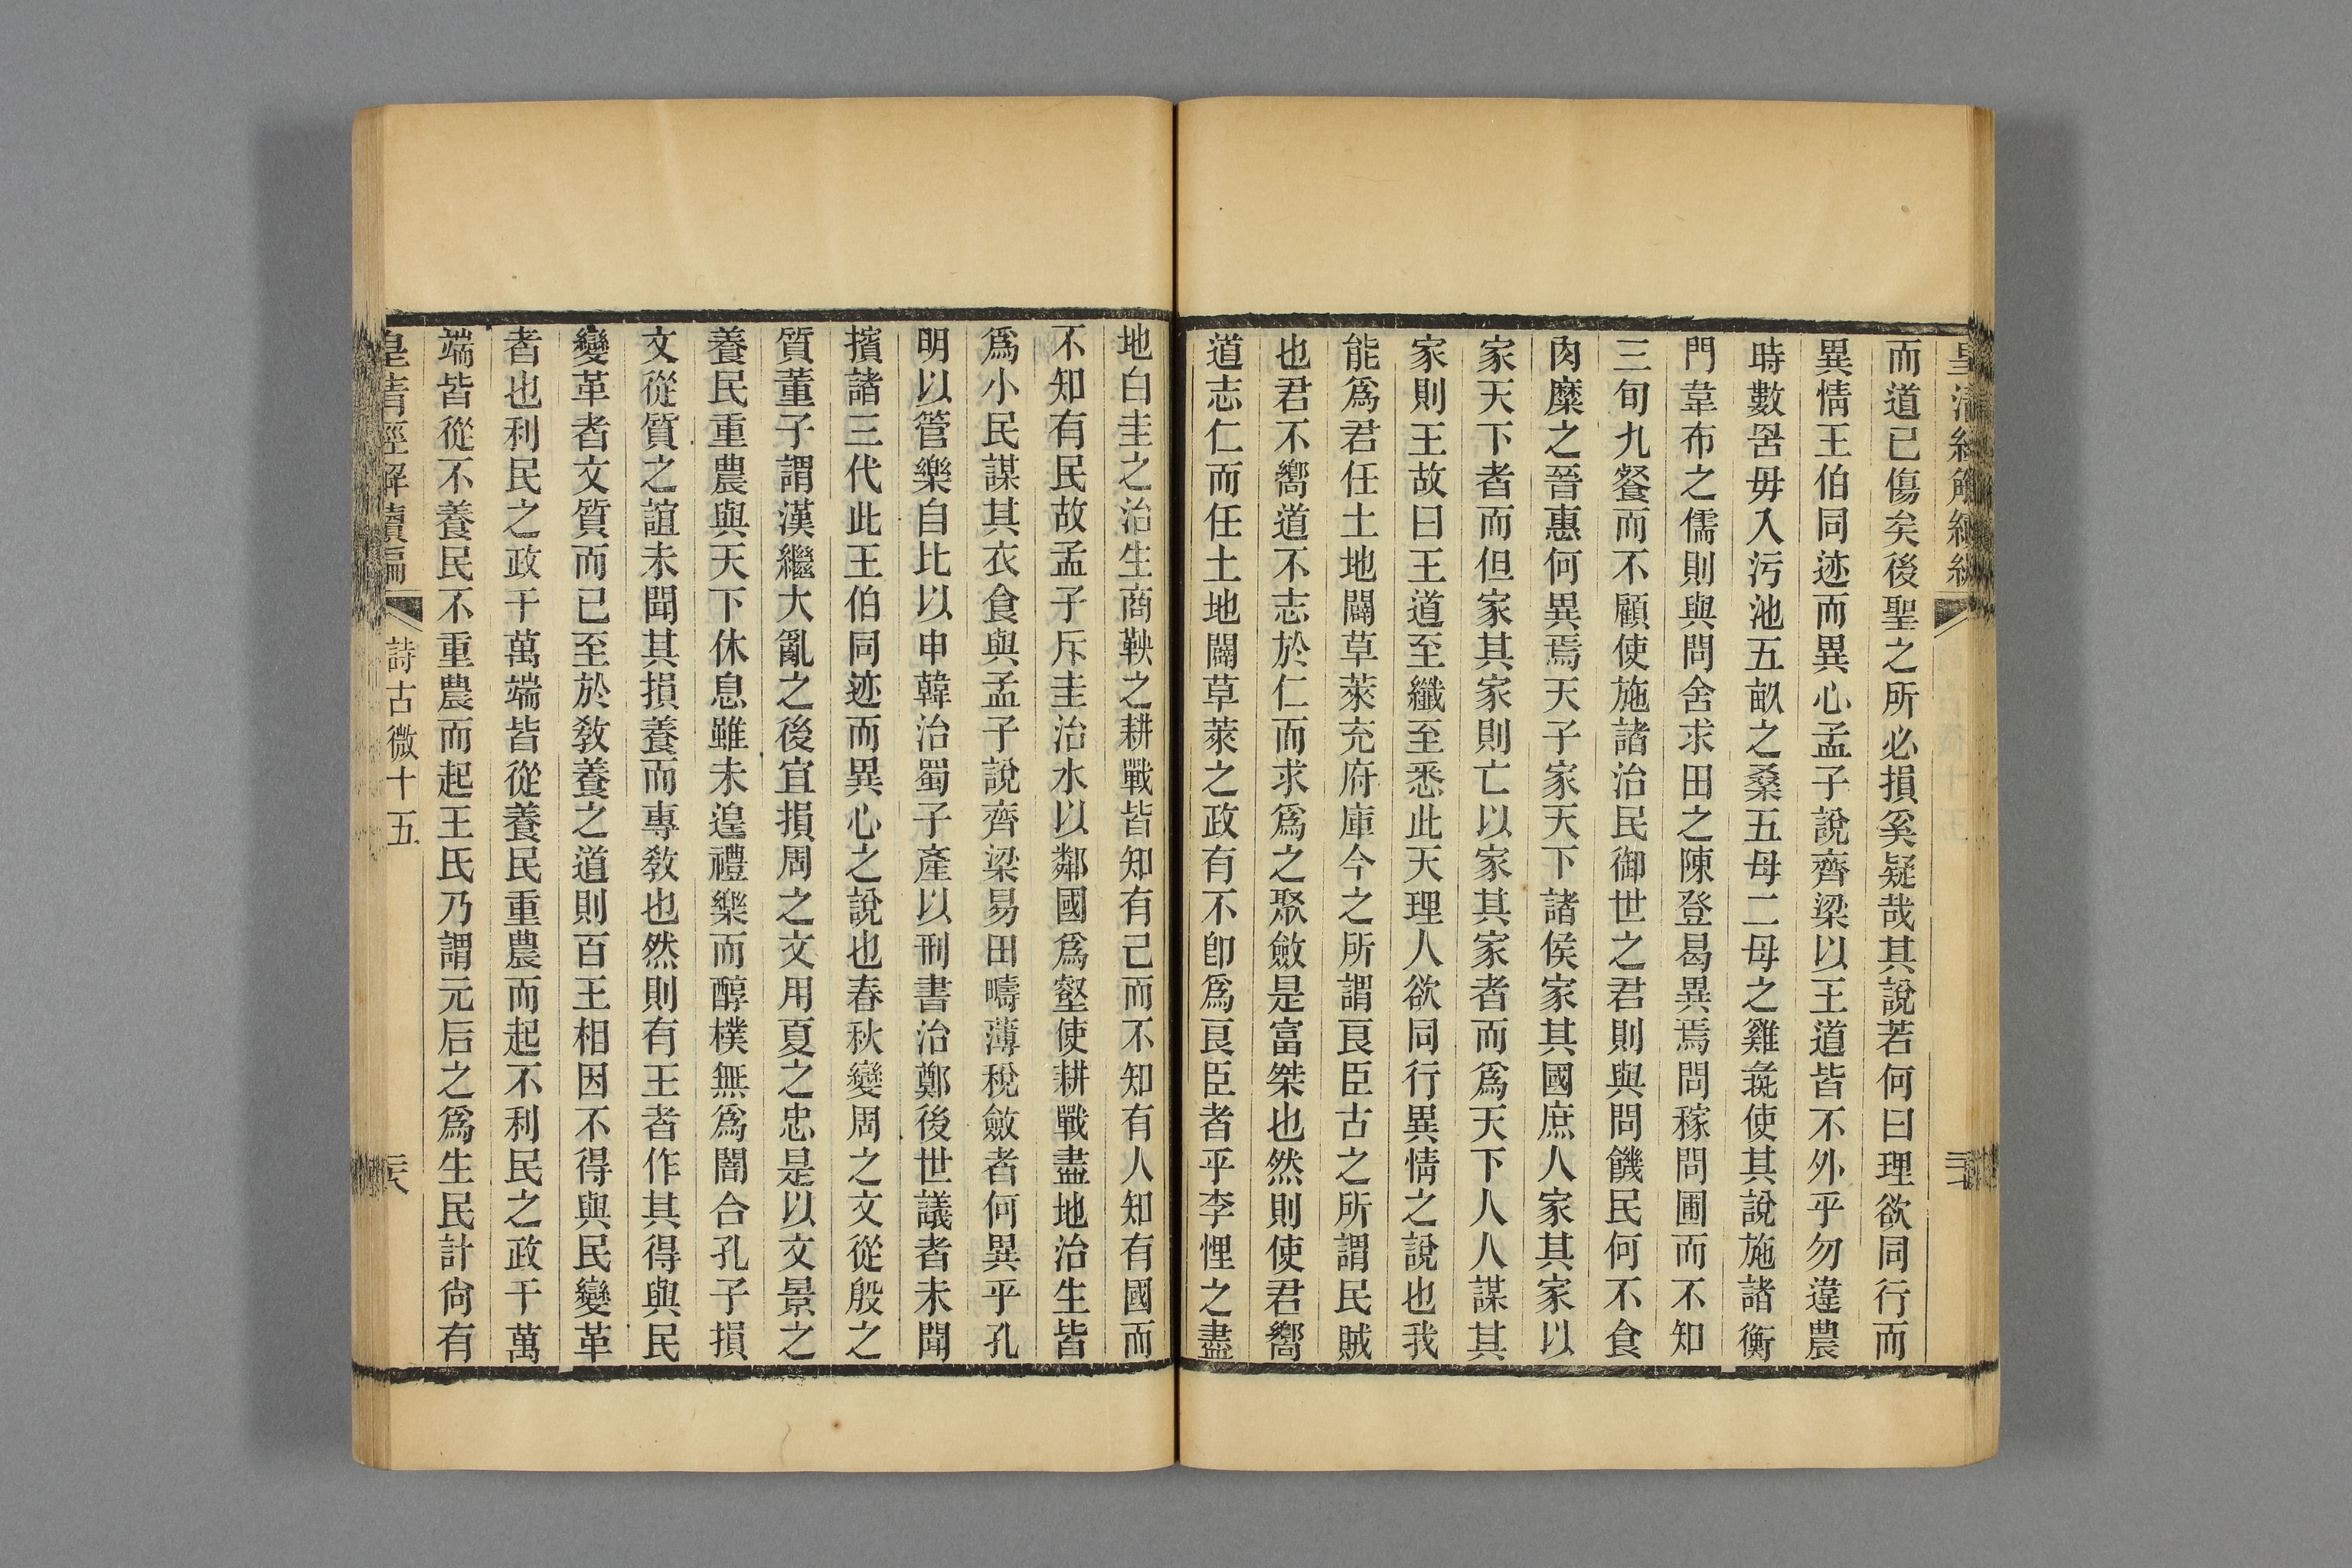 皇清經解續編
而道已傷矣後聖之所必損奚疑哉其說若何曰理欲同行而
異情王伯同迹而異心孟子說齊梁以王道皆不外乎勿違農
時數罟毋入污池五畝之桑五母二母之雞彘使其說施諸衡
門韋布之儒則與問舍求田之陳登曷異焉問稼問圃而不知
三旬九餐而不顧使施諸治民御世之君則與問饑民何不食
肉糜之晉惠何異焉天子家天下諸侯家其國庶人家其家以
家天下者而但家其家則亡以家其家者而爲天下人人謀其
家則王故曰王道至纖至悉此天理人欲同行異情之說也我
能爲君任土地闢草萊充府庫今之所謂良臣古之所謂民賊
也君不嚮道不志於仁而求爲之聚斂是富桀也然則使君嚮
道志仁而任土地闢草萊之政有不卽爲良臣者乎李悝之盡
地白圭之治生商鞅之耕戰皆知有己而不知有人知有國而
不知有民故孟子斥圭治水以鄰國爲壑使耕戰盡地治生皆
爲小民謀其衣食與孟子說齊梁易田疇薄稅斂者何異乎孔
明以管樂自比以申韓治蜀子產以刑書治鄭後世議者未聞
擯諸三代此王伯同迹而異心之說也春秋變周之文從殷之
質董子謂漢繼大亂之後宜損周之文用夏之忠是以文景之
養民重農與天下休息雖未遑禮樂而醇樸無爲闇合孔子損
文從質之誼未聞其損養而專敎也然則有王者作其得與民
變革者文質而已至於敎養之道則百王相因不得與民變革
者也利民之政千萬端皆從養民重農而起不利民之政千萬
端皆從不養民不重農而起王氏乃謂元后之爲生民計尙有
皇清經解續編
詩古微十五